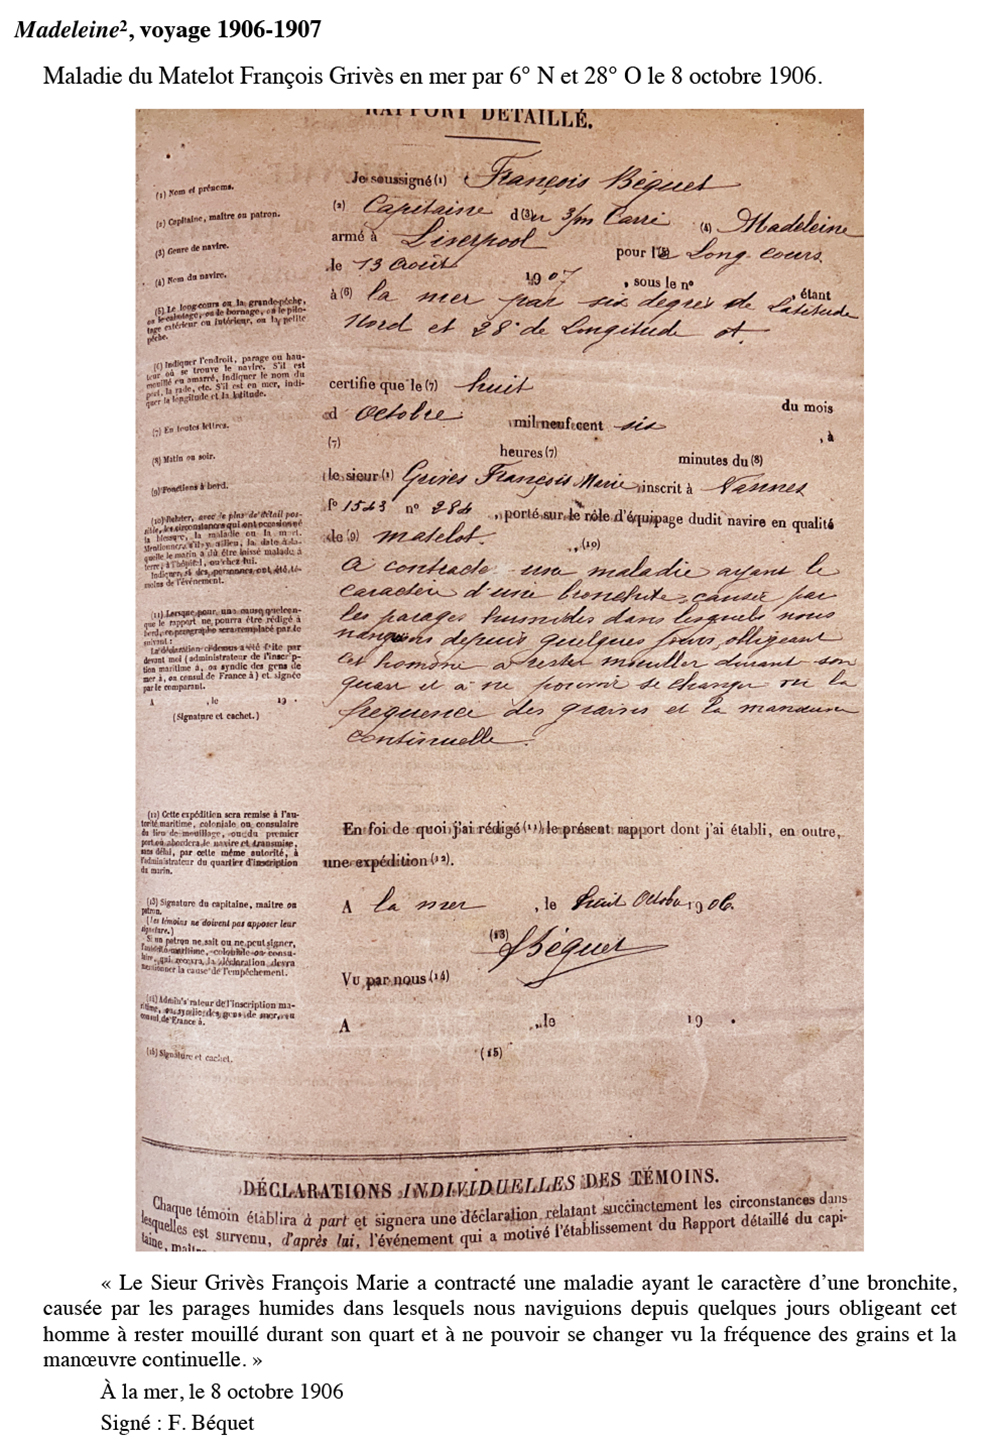 Madeleine², voyage 1906-1907
Maladie du Matelot François Grivès en mer par 6° N et 28° O le 8 octobre 1906.
RAPPORT DÉTAILLÉ.
(1) Nom et prénoms.
(2) Capitaine, maître ou patron.
(3) Genre de navire.
(4) Nom du navire.
(5) Le long-cours ou la grande pêche,
ou le cabotage, ou le bornage, ou le pilo-
tage extérieur ou intérieur, ou la petite
pêche.
(6) Indiquer l'endroit, parage ou hau-
teur où se trouve le navire. S'il est
mouillé ou amarré, indiquer le nom du
port, la rade, etc. S'il est en mer, indi-
quer la longitude et la latitude.
(7) En toutes lettres.
(8) Matin ou soir.
(9) Fonctions à bord.
(10) Relater, avec le plus de détail pos-
sible, les circonstances qui ont occasionné
la blessure, la maladie ou la mort.
Mentionner, s'il y a lieu, la date à la-
quelle le marin a dû être laissé malade à
terre, à l'hôpital, ou chez lui.
Indiquer si des personnes ont été té-
moins de l'événement.
(11) Lorsque, pour une cause quelcon-
que le rapport ne pourra être rédigé à
bord, ce paragraphe sera remplacé par le
suivant :
La déclaration ci-dessus a été faite par
devant moi (administrateur de l'inscrip-
tion maritime à, ou syndic des gens de
mer à, ou consul de France à) et signée
par le comparant.
A , le 19 .
(Signature et cachet.)
(12) Cette expédition sera remise à l'au-
torité maritime, coloniale ou consulaire
du lieu de mouillage, ou du premier
port où abordera le navire et transmise,
sans délai, par cette même autorité, à
l'administrateur du quartier d'inscription
du marin.
(13) Signature du capitaine, maître ou
patron.
(Les témoins ne doivent pas apposer leur
signature.)
Si un patron ne sait ou ne peut signer,
l'autorité maritime, coloniale ou consu-
laire, qui recevra la déclaration devra
mentionner la cause de l'empêchement.
(14) Administrateur de l'inscription ma-
ritime, ou syndic des gens de mer, ou
consul de France à.
(15) Signature et cachet.
Je soussigné (1) François Béquet
(2) Capitaine d(3)u 3/m Carré (4) Madeleine
armé à Liverpool pour l(5)e Long cours
le 13 Août 1907, sous le n° étant
à (6) la mer par six degrés de Latitude
Nord et 28° de Longitude ot.
certifie que le (7) huit du mois
d Octobre mil neuf cent six , à
(7) heures (7) minutes du (8)
le sieur (1) Grives François Marie inscrit à Vannes
f° 1543 n° 284, porté sur le rôle d'équipage dudit navire en qualité
de (9) matelot. , (10)
a contracté une maladie ayant le
caractère d'une bronchite, causée par
les parages humides dans lesquels nous
naviguons depuis quelques jours, obligeant
cet homme a rester mouiller durant son
quart et a ne pouvoir se changer vu la
fréquence des grains et la manœuvre
continuelle.
En foi de quoi j'ai rédigé (11) le présent rapport dont j'ai établi, en outre,
une expédition (12).
A la mer , le huit Octobre 1906.
(13)
FBéquet
Vu par nous (14)
A , le 19 .
(15)
DÉCLARATIONS INDIVIDUELLES DES TÉMOINS.
Chaque témoin établira à part et signera une déclaration relatant succinctement les circonstances dans
lesquelles est survenu, d'après lui, l'événement qui a motivé l'établissement du Rapport détaillé du capi-
taine,
« Le Sieur Grivès François Marie a contracté une maladie ayant le caractère d'une bronchite,
causée par les parages humides dans lesquels nous naviguions depuis quelques jours obligeant cet
homme à rester mouillé durant son quart et à ne pouvoir se changer vu la fréquence des grains et la
manœuvre continuelle. »
À la mer, le 8 octobre 1906
Signé : F. Béquet